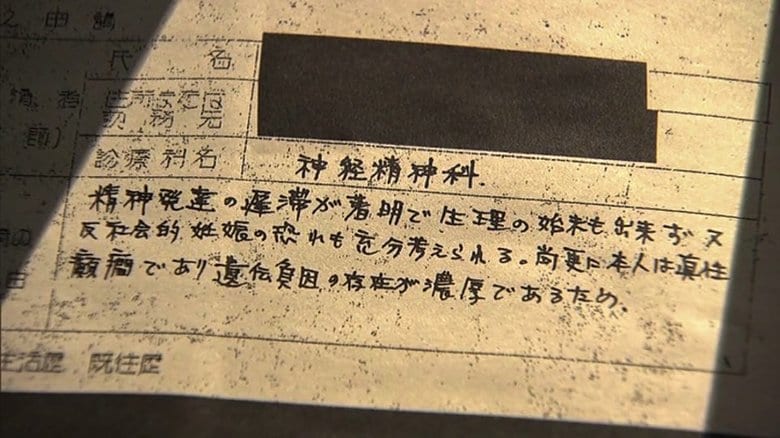 由 請
氏 名
請 者 住所または
師） 勤務先
診療科名 神経精神科.
精神発達の遅滞が著明で生理の始末も出来ず又
反社会的妊娠の恐れも充分考えられる。尚更に本人は眞性
癲癇であり遺伝負因の存在が濃厚であるため.
由
生活歴 既往歴